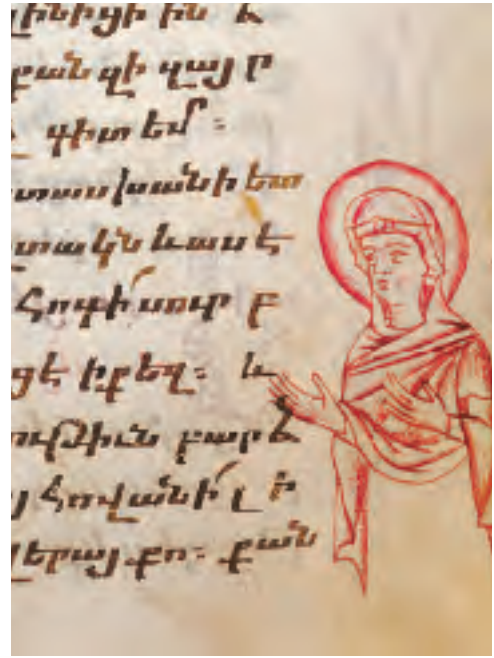 լինիցի ինձ
քանզի զայր
չ գիտեմ։
տասխանի ետ
շտակն և ասէ
Հոգի սուրբ
ցէ ի քեզ։ և
ութիւն բարձ
յ հովանի լի
վերայ քո։ քան